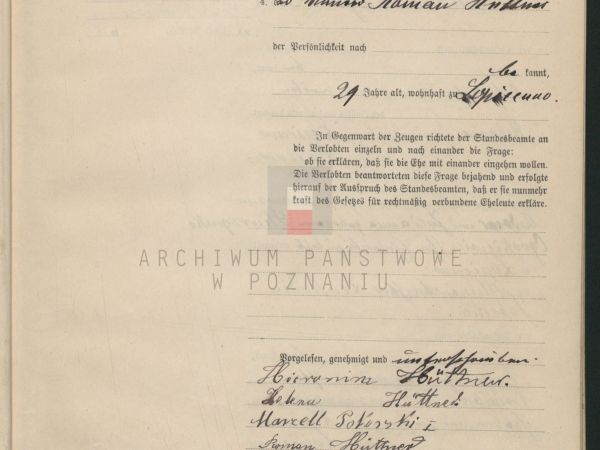 4. Roman Hüttner
der Persönlichkeit nach
be kannt,
29 Jahre alt, wohnhaft zu
In Gegenwart der Zeugen richtete der Standesbeamte an
die Verlobten einzeln und nach einander die Frage:
ob sie erklären, daß sie die Ehe mit einander eingehen wollen.
Die Verlobten beantworteten diese Frage bejahend und erfolgte
hierauf der Ausspruch des Standesbeamten, daß er sie nunmehr
kraft des Gesetzes für rechtmäßig verbundene Eheleute erkläre.
ARCHIWUM PAŃSTWOWE
W POZNANIU
Vorgelesen, genehmigt und unterschrieben.
Hieronim Hüttner.
Helena Hüttner
Marcell
Roman Hüttner